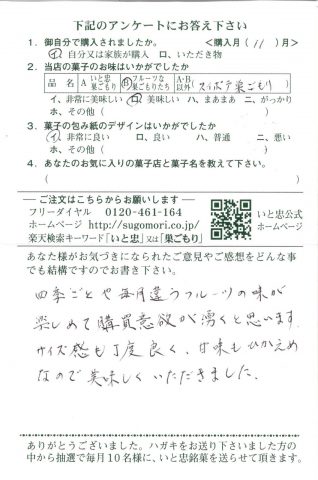 下記のアンケートにお答え下さい
1. 御自分で購入されましたか。 <購入月( 11 )月>
イ、自分又は家族が購入 ロ、いただき物
2. 当店の菓子のお味はいかがでしたか
品名 A いと忠巣ごもり B フルーツな巣ごもりたち A・B以外
イ、非常に美味しい ロ、美味しい ハ、まあまあ ニ、がっかり
ホ、その他( )
3. 菓子の包み紙のデザインはいかがでしたか
イ、非常に良い ロ、良い ハ、普通 ニ、悪い
ホ、その他( )
4. あなたのお気に入りの菓子店と菓子名を教えて下さい。
( )
ご注文はこちらからお願いします
フリーダイヤル 0120-461-164
ホームページ http://sugomori.co.jp/
楽天検索キーワード「いと忠」又は「巣ごもり」
いと忠公式
ホームページ
あなた様がお気づきになられたご意見やご感想をどんな事
でも結構ですのでお書き下さい。
四季ごとや毎月違うフルーツの味が
楽しめて購買意欲が湧くと思います
サイズ感も丁度良く、甘味もひかえめ
なので美味しくいただきました。
ありがとうございました。ハガキをお送り下さいました方の
中から抽選で毎月10名様に、いと忠銘菓を送らせて頂きます。